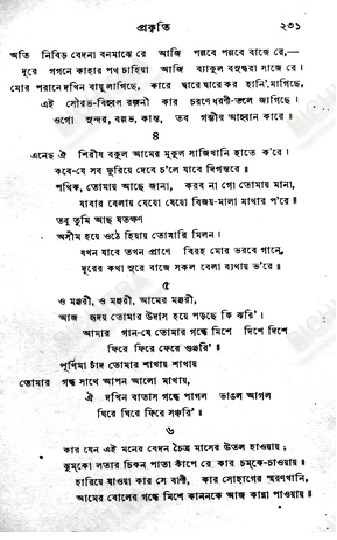 প্রকৃতি ২৩১
অতি নিবিড় বেদনা বনমাঝে রে আজি পল্লবে পল্লবে বাজে রে,—
দূরে গগনে কাহার পথ চাহিয়া আজি ব্যাকুল বসুন্ধরা সাজে রে।
মোর পরানে দখিন বায়ু লাগিছে, কারে দ্বারে দ্বারে কর হানি' মাগিছে,
এই সৌরভ-বিহ্বল রজনী কার চরণে ধরণী-তলে জাগিছে।
ওগো সুন্দর, বল্লভ, কান্ত, তব গম্ভীর আহ্বান কারে॥
৪
এনেছ ঐ শিরীষ বকুল আমের মুকুল সাজিখানি হাতে ক'রে।
কবে-যে সব ফুরিয়ে দেবে চ'লে যাবে দিগন্তরে॥
পথিক, তোমায় আছে জানা, করব না গো তোমায় মানা,
যাবার বেলায় যেয়ো যেয়ো বিজয়-মালা মাথায় প'রে॥
তবু তুমি আছ যতক্ষণ
অসীম হয়ে ওঠে হিয়ায় তোমারি মিলন।
যখন যাবে তখন প্রাণে বিরহ মোর ভরবে গানে,
দূরের কথা সুরে বাজে সকল বেলা ব্যথায় ভ'রে॥
৫
ও মঞ্জরী, ও মঞ্জরী, আমের মঞ্জরী,
আজ হৃদয় তোমার উদাস হয়ে পড়ছে কি ঝরি'।
আমার গান-যে তোমার গন্ধে মিশে দিশে দিশে
ফিরে ফিরে ফেরে গুঞ্জরি'॥
পূর্ণিমা চাঁদ তোমার শাখায় শাখায়
তোমার গন্ধ সাথে আপন আলো মাখায়,
ঐ দখিন বাতাস গন্ধে পাগল ভাঙল আগল
ঘিরে ঘিরে ফিরে সঞ্চরি'॥
৬
কার যেন এই মনের বেদন চৈত্র মাসের উতল হাওয়ায়;
ঝুমকো লতার চিকন পাতা কাঁপে রে কার চমকে-চাওয়ায়।
হারিয়ে যাওয়া কার সে বাণী, কার সোহাগের স্মরণখানি,
আমের বোলের গন্ধে মিশে কাননকে আজ কান্না পাওয়ায়॥